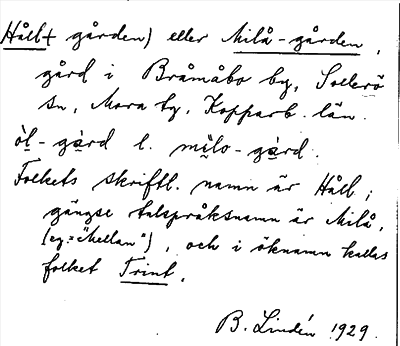 Håll(gården) eller Milå-gården,
gård i Bråmåbo by, Sollerö
sn, Mora tg, Kopparb. län.
òl-gàrd l. mìlo-gàrd.
Folkets skriftl. namn är Håll;
gängse talspråksnamn är Milå,
(eg. = "Mellan"), och i öknamn kallas
folket Trint.
B. Lindén 1929.